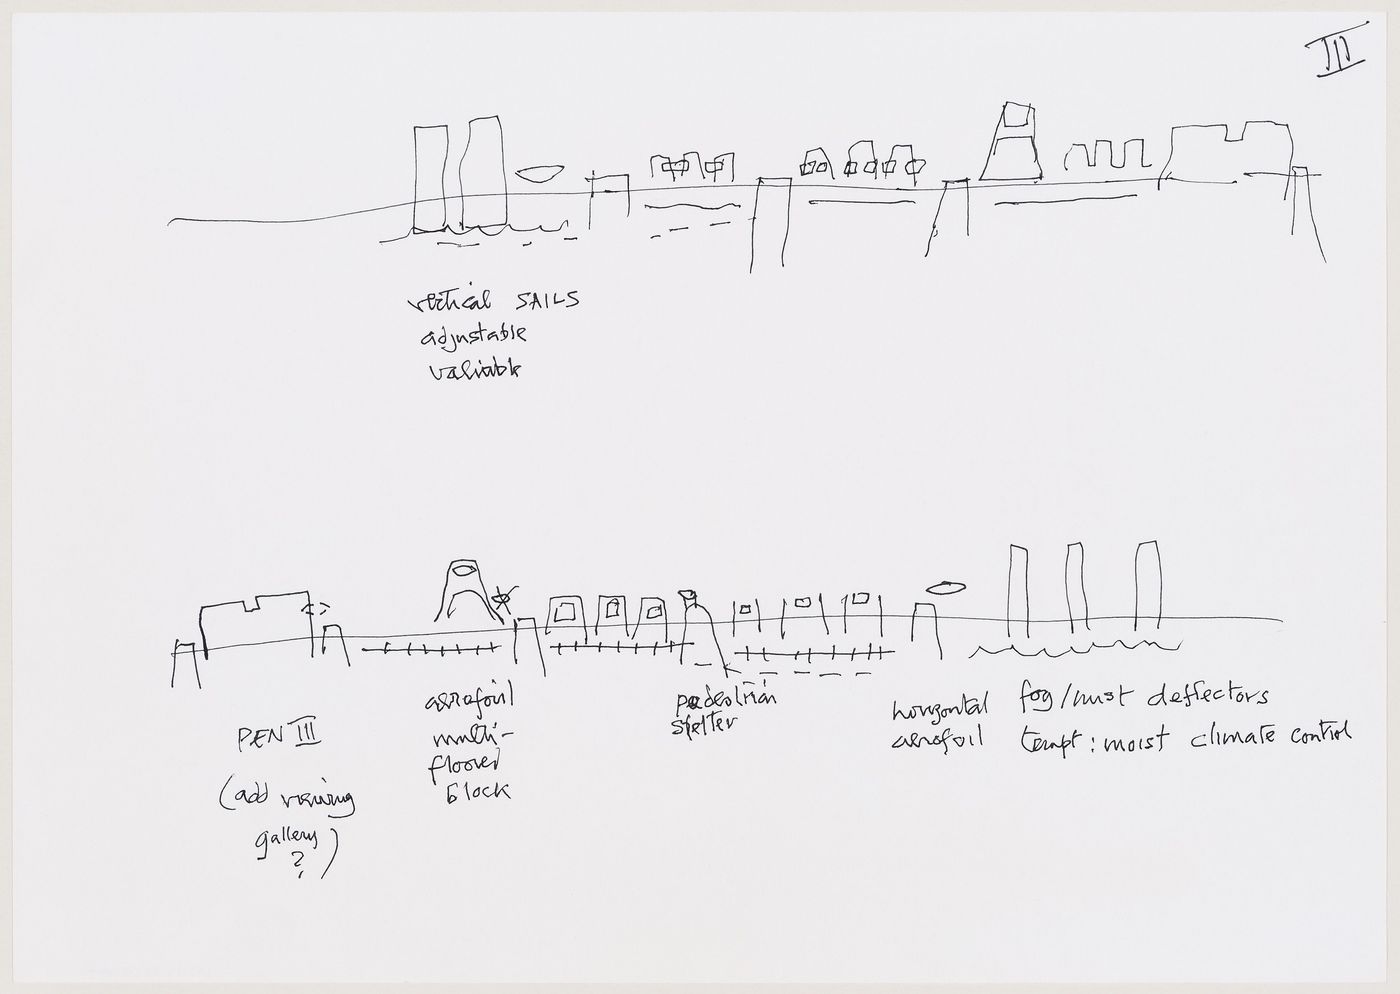 III
vertical SAILS
adjustable
variable
PEN III
(add viewing
gallery)
?
aerofoil
multi-
floored
block
pedestrian
shelter
horizontal
aerofoil
fog/mist deflectors
tempt: moist climate control